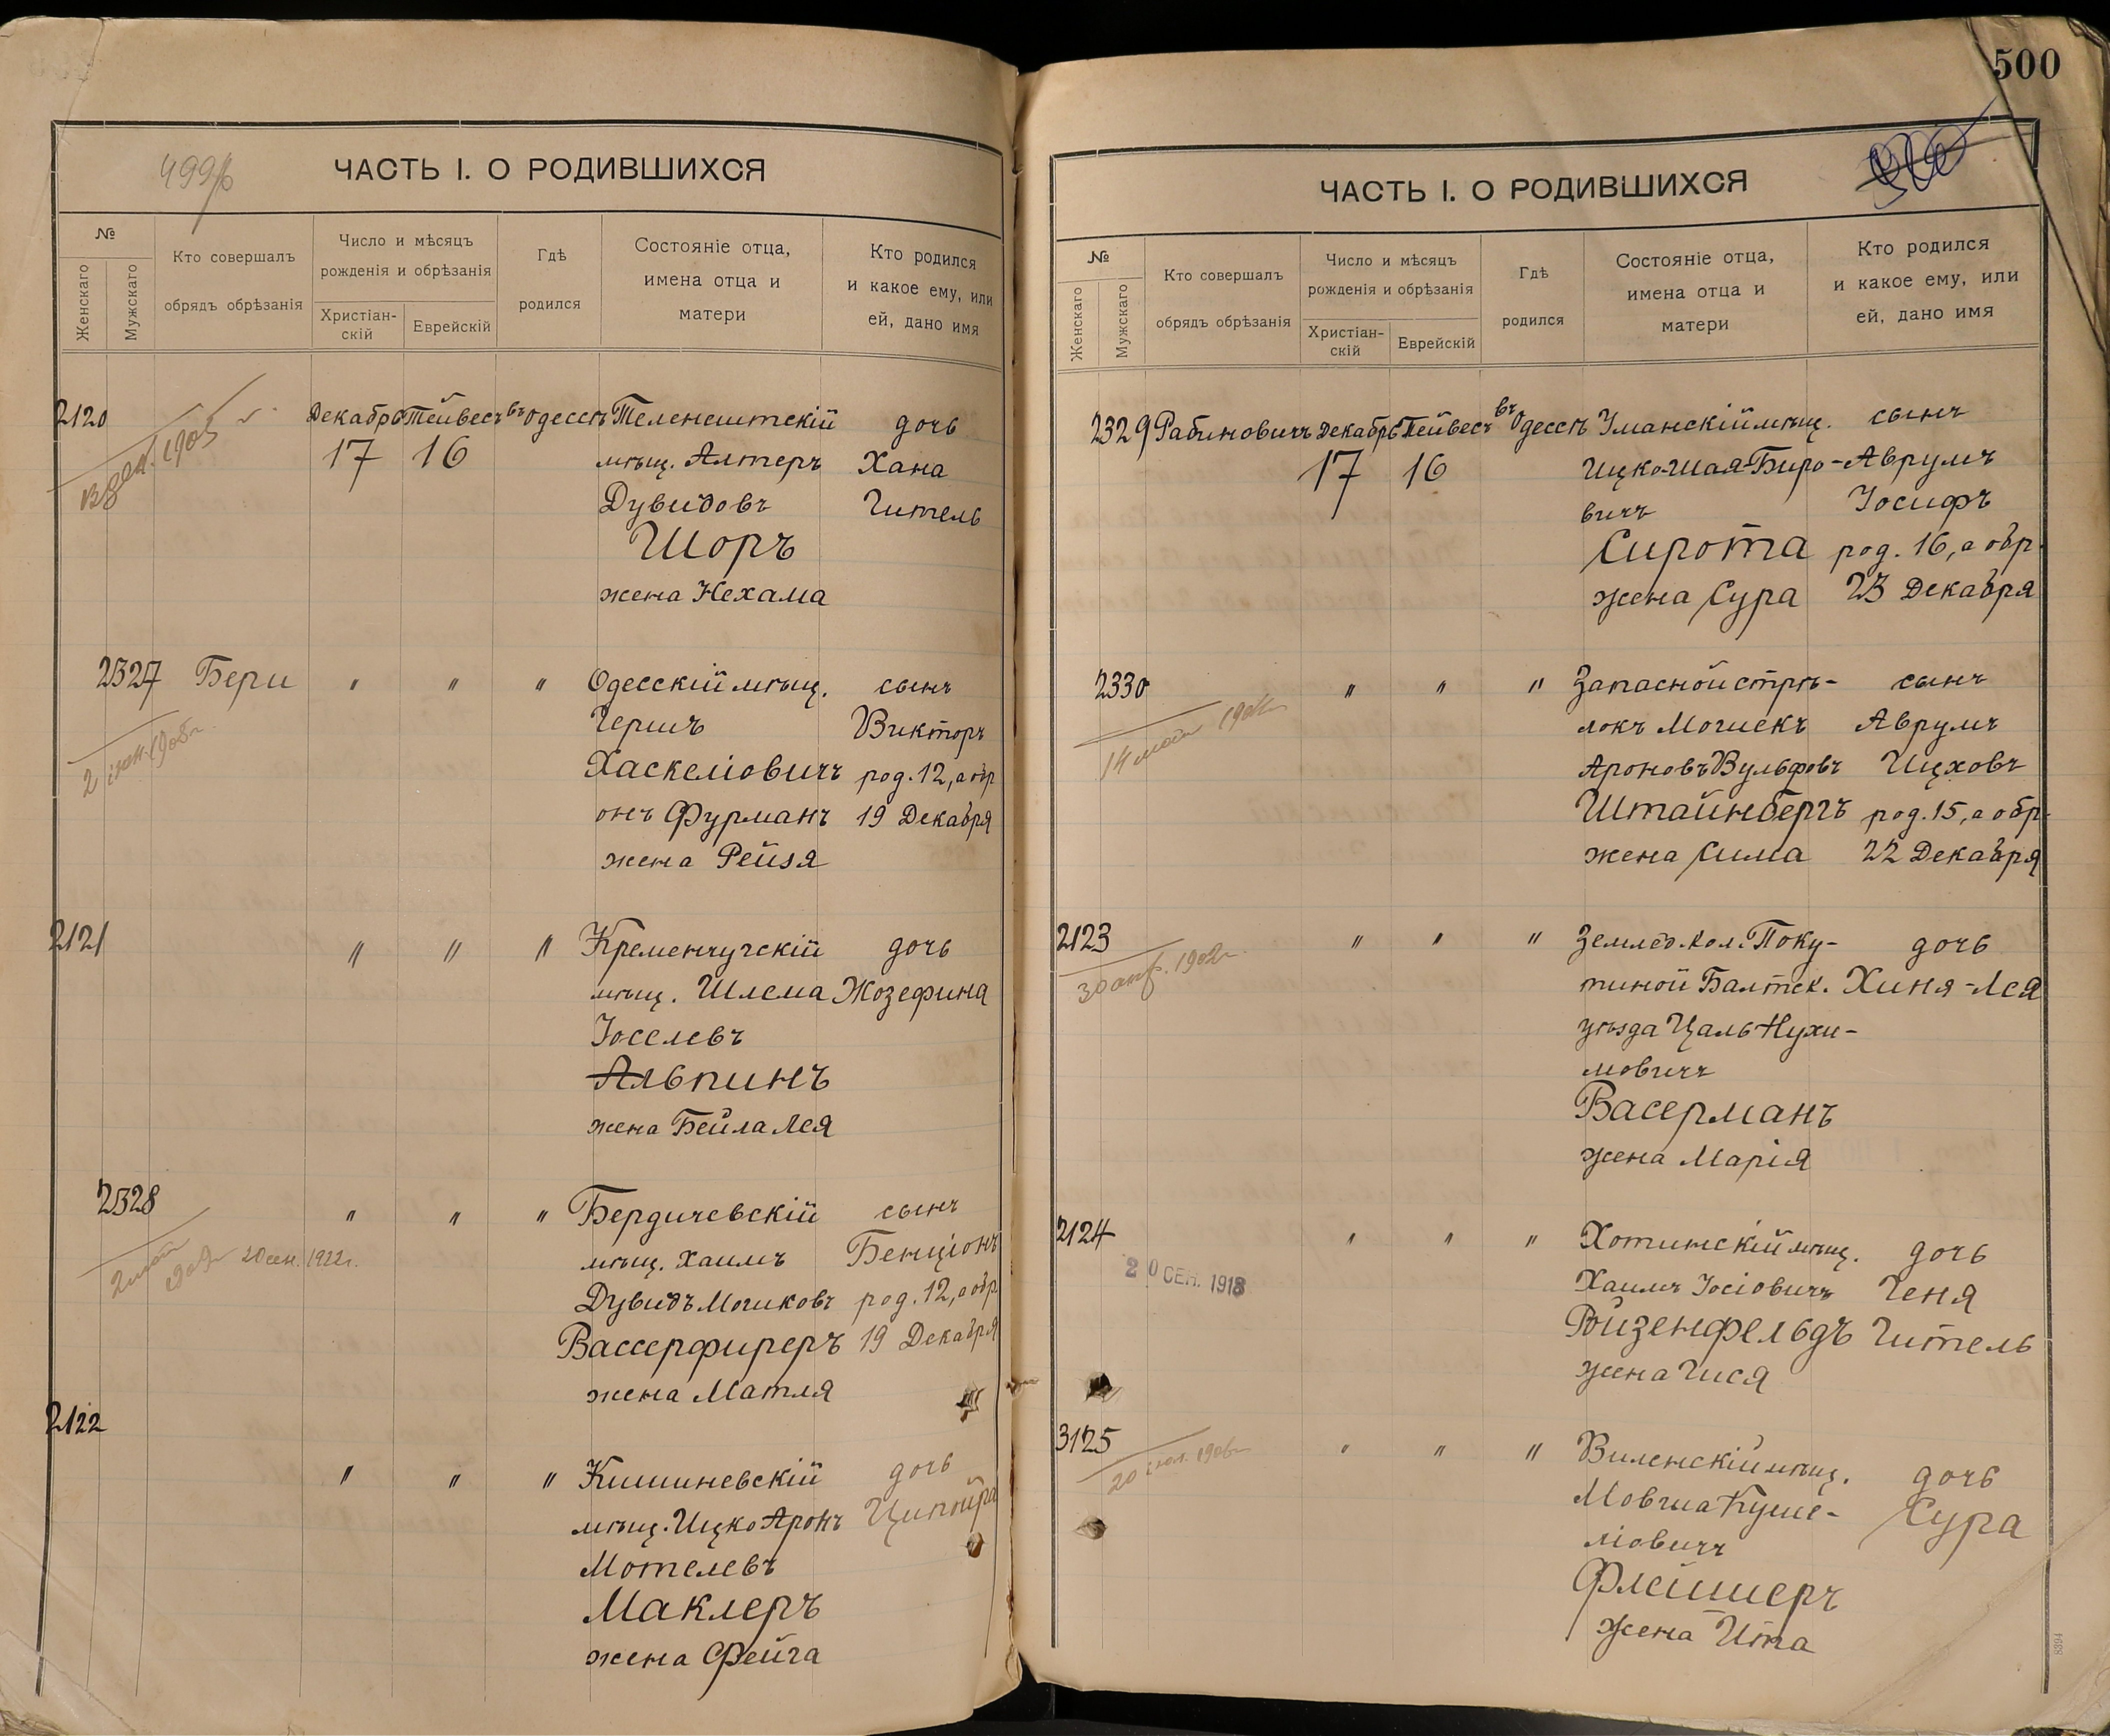 499
ЧАСТЬ I. О РОДИВШИХСЯ
№
Женскаго
Мужскаго
Кто совершалъ
обрядъ обрѣзанія
Число и мѣсяцъ
рожденія и обрѣзанія
Христіан-
скій
Еврейскій
Гдѣ
родился
Состояніе отца,
имена отца и
матери
Кто родился
и какое ему, или
ей, дано имя
2120 Декабрь Тейвесъ въ Одессѣ Теленештскій дочь
17 16 мѣщ. Алтеръ Хана
Дувидовъ Гитель
Шоръ
жена Нехама
1905
2327 Бери " " " Одесскій мѣщ. сынъ
Гершъ Викторъ
Хаскеліовичъ род. 12, а обр
онъ Фурманъ 19 Декабря
жена Рейзя
1908г.
2121 " " " Кременчугскій дочь
мѣщ. Шлема Жозефина
Іоселевъ
Альпинъ
жена Бейла Лея
2328 " " " Бердичевскій сынъ
мѣщ. Хаимъ Бенціонъ
Дувидъ Мошковъ род. 12, а обр
Вассерфиреръ 19 Декабря
жена Матля
20 сен. 1922г.
2122 " " " Кишиневскій дочь
мѣщ. Ицко Аронъ Ципойра
Мотелевъ
Маклеръ
жена Фейга
500
ЧАСТЬ I. О РОДИВШИХСЯ
№
Женскаго
Мужскаго
Кто совершалъ
обрядъ обрѣзанія
Число и мѣсяцъ
рожденія и обрѣзанія
Христіан-
скій
Еврейскій
Гдѣ
родился
Состояніе отца,
имена отца и
матери
Кто родился
и какое ему, или
ей, дано имя
2329 Рабиновичъ Декабрь Тейвесъ въ Одессѣ Уманскій мѣщ. сынъ
17 16 Ицко-Шая-Биро- Аврумъ
вичъ Іосифъ
Сирота род. 16, а обр.
жена Сура 23 Декабря
2330 " " " Запасной стрѣ- сынъ
локъ Мошекъ Аврумъ
Ароновъ Вульфовъ Ицховъ
Штайнбергъ род. 15, а обр.
жена Сима 22 Декабря
14
2123 " " " Землед. кол. Поку- дочь
тиной Балтск. Хиня-Лея
уѣзда Цаль Нухи-
мовичъ
Васерманъ
жена Марія
1902г.
2124 " " " Хотинскій мѣщ. дочь
Хаимъ Іосіовичъ Геня
Ройзенфельдъ Гитель
жена Гися
20 СЕН. 1918
3125 " " " Виленскій мѣщ. дочь
Мовша Куше- Сура
ліовичъ
Флейшеръ
жена Ита
20 1906г.
8394